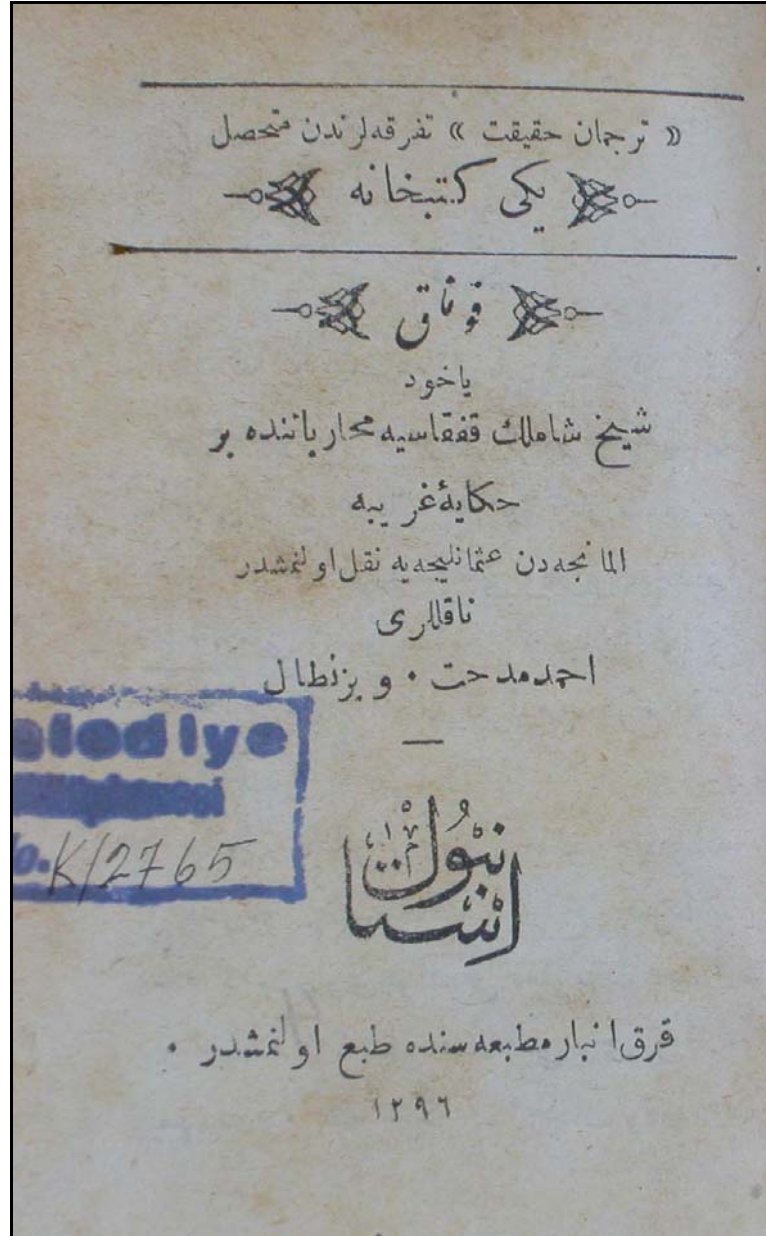 « ترجمان حقيقت » تفرقه‌لرندن متحصل
يكى كتبخانه
قوناق
ياخود
شيخ شاملك قفقاسيه محارباتنده بر
حكايهٔ غريبه
المانجه‌دن عثمانليجه‌يه نقل اولنمشدر
ناقللرى
احمد مدحت • ويزنطال
elediye
No. K/2765
استانبول
قرق انبار مطبعه سنده طبع اولنمشدر •
١٢٩٦